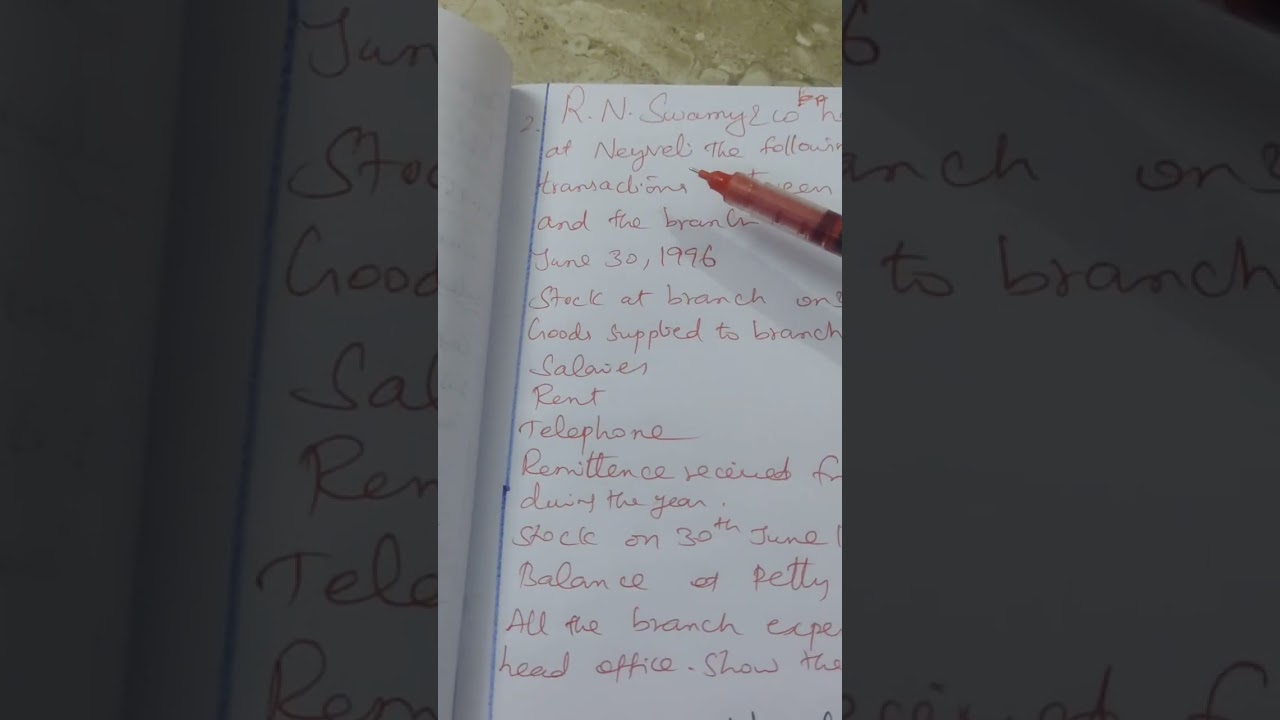 2. R. N. Swamy & Co
at Neyveli The followin
transactions tween
and the branch
June 30, 1996
Stock at branch on
Goods supplied to branch
Salaries
Rent
Telephone
Remittence received f
during the year.
Stock on 30th June
Balance of Petty
All the branch expe
head office. Show the